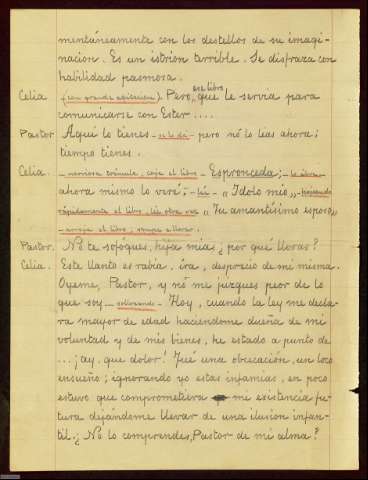 mentáneamente con los destellos de su imagi-
nacion. Es un istrion terrible. Se disfraza con
habilidad pasmosa.
Celia (con grande agitacion). Pero, ese libro que le servia para
comunicarse con Ester....
Pastor Aquí lo tienes – se lo dá – pero nó lo leas ahora;
tiempo tienes.
Celia. – nerviosa trémula, coje el libro – Espronceda; – lo abre –
ahora mismo lo veré; – lée – "Idolo mio" – hojeando
rápidamente el libro – lée otra vez "Tu amantísimo esposo" –
– arroja el libro, rompe a llorar.
Pastor. No te sofoques, hija mia; ¿por qué lloras?
Celia. Este llanto es rabia, ira, desprecio de mi misma.
Oyeme, Pastor, y nó me juzgues peor de lo
que soy – sollozando – Hoy, cuando la ley me decla-
ra mayor de edad haciendome dueña de mi
voluntad y de mis bienes, he estado a punto de
...¡ay, que dolor! Fué una obcecación, un loco
ensueño; ignorando yo estas infamias, en poco
estuvo que comprometiera mi existencia fu-
tura dejándome llevar de una ilusion infan-
til. ¿No lo comprendes, Pastor de mi alma?